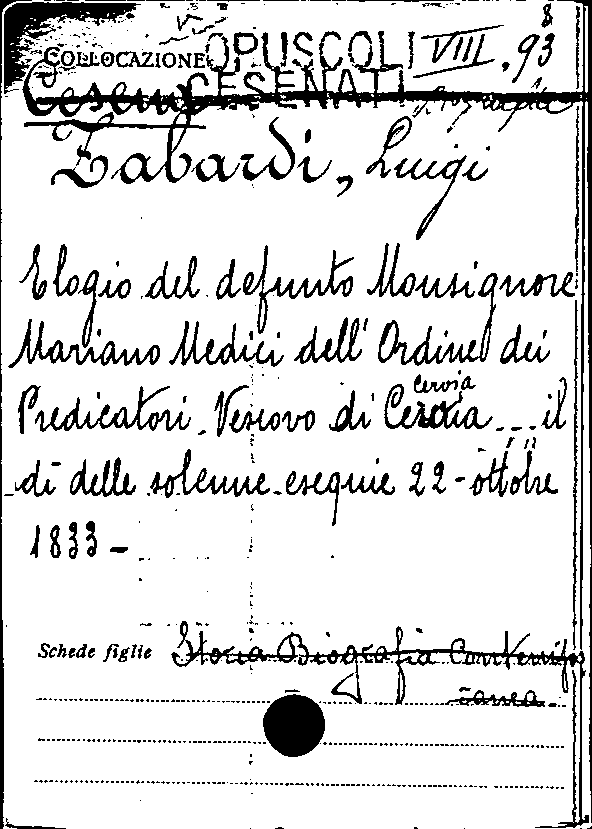 8
COLLOCAZIONE OPUSCOLI VIII .93
Cesena CESENATI
Zabardi, Luigi
Elogio del defunto Monsignore
Mariano Medici dell' Ordine dei
Predicatori. Vescovo di Cervia Cervia ... il
dì delle solenne esequie 22 - ottobre
1833 -
Schede figlie Storia Biografia Contempo
ranea.